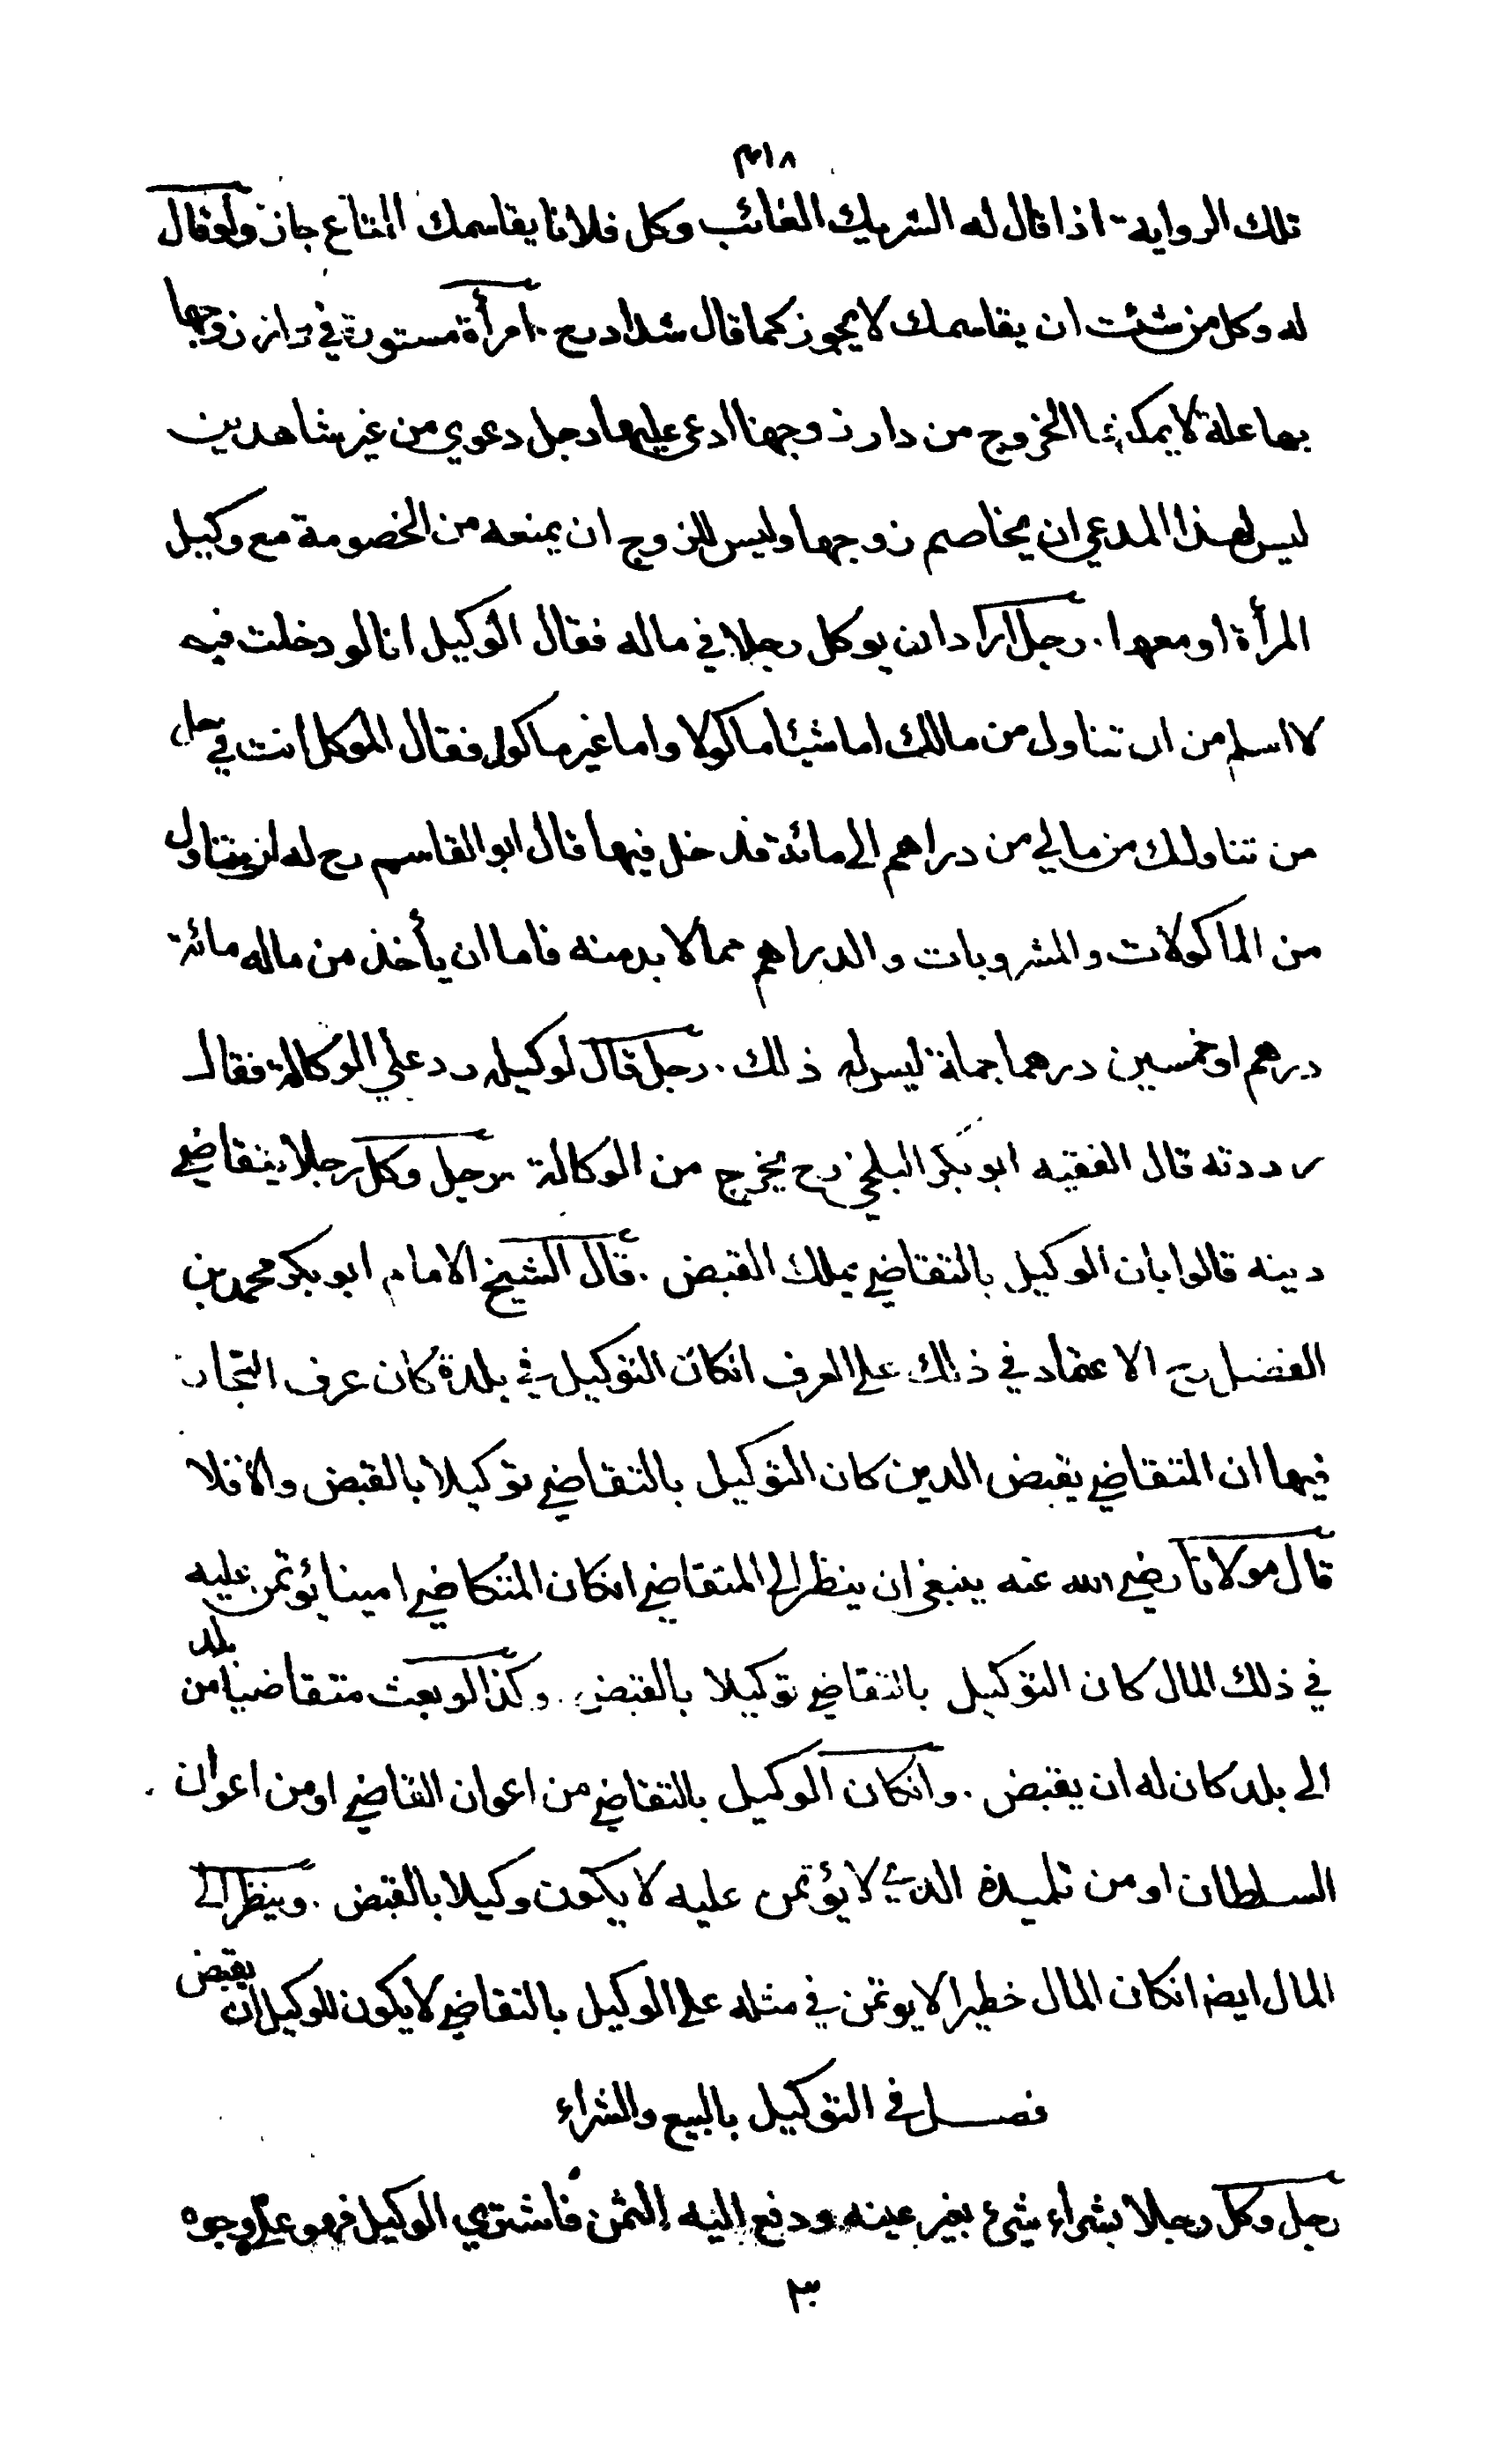 ٣١٨
تلك الرواية اذا قال له الشريك الغائب وكل فلانا يقاسمك المتاع جاز ولو قال
له وكل من شئت ان يقاسمك لا يجوز كما قال شداد رح . امرأة مستورة في دار زوجها
بها علة لا يمكنها الخروج من دار زوجها ادعى عليها رجل دعوي من غير شاهدين
ليس لهذا المدعي ان يخاصم زوجها وليس للزوج ان يمنعه من الخصومة مع وكيل
المرأة او معها . رجل اراد ان يوكل رجلا في ماله فقال الوكيل انا لو دخلت فيه
لا اسلم من ان تناول من مالك اما شيئا ماكولا واما غير ماكول فقال الموكل انت في حل
من تناولك من مالي من دراهم الى مائة فدخل فيها قال ابو القاسم رح له ان يتناول
من الماكولات والمشروبات والدراهم مما لا بد منه فاما ان يأخذ من ماله مائة
درهم او خمسين درهما جملة ليس له ذلك . رجل قال لوكيله رد علي الوكالة فقال
رددته قال الفقيه ابو بكر البلخي رح يخرج من الوكالة رجل وكل رجلا يتقاضي
دينه قالوا بان الوكيل بالتقاضي يملك القبض . قال الشيخ الامام ابو بكر محمد بن
الفضل رح الاعتماد في ذلك على العرف انكان التوكيل في بلدة كان عرف التجار
فيها ان المتقاضي يقبض الدين كان التوكيل بالتقاضي توكيلا بالقبض والا فلا
قال مولانا رضي الله عنه ينبغي ان ينظر الى المتقاضي انكان المتكاضي امينا يؤتمن عليه
في ذلك المال كان التوكيل بالتقاضي توكيلا بالقبض . وكذا لو بعث متقاضيا من بلد
الى بلد كان له ان يقبض . وانكان الوكيل بالتقاضي من اعوان القاضي او من اعوان
السلطان او من تلميذة الذي لا يؤتمن عليه لا يكون وكيلا بالقبض . وينظر الى
المال ايضا انكان المال خطيرا لا يوتمن في مثله على الوكيل بالتقاضي لا يكون للوكيل ان يقبض
فصل في التوكيل بالبيع والشراء
رجل وكل رجلا بشراء شئ بغير عينه ودفع اليه الثمن فاشترى الوكيل فهو على وجوه